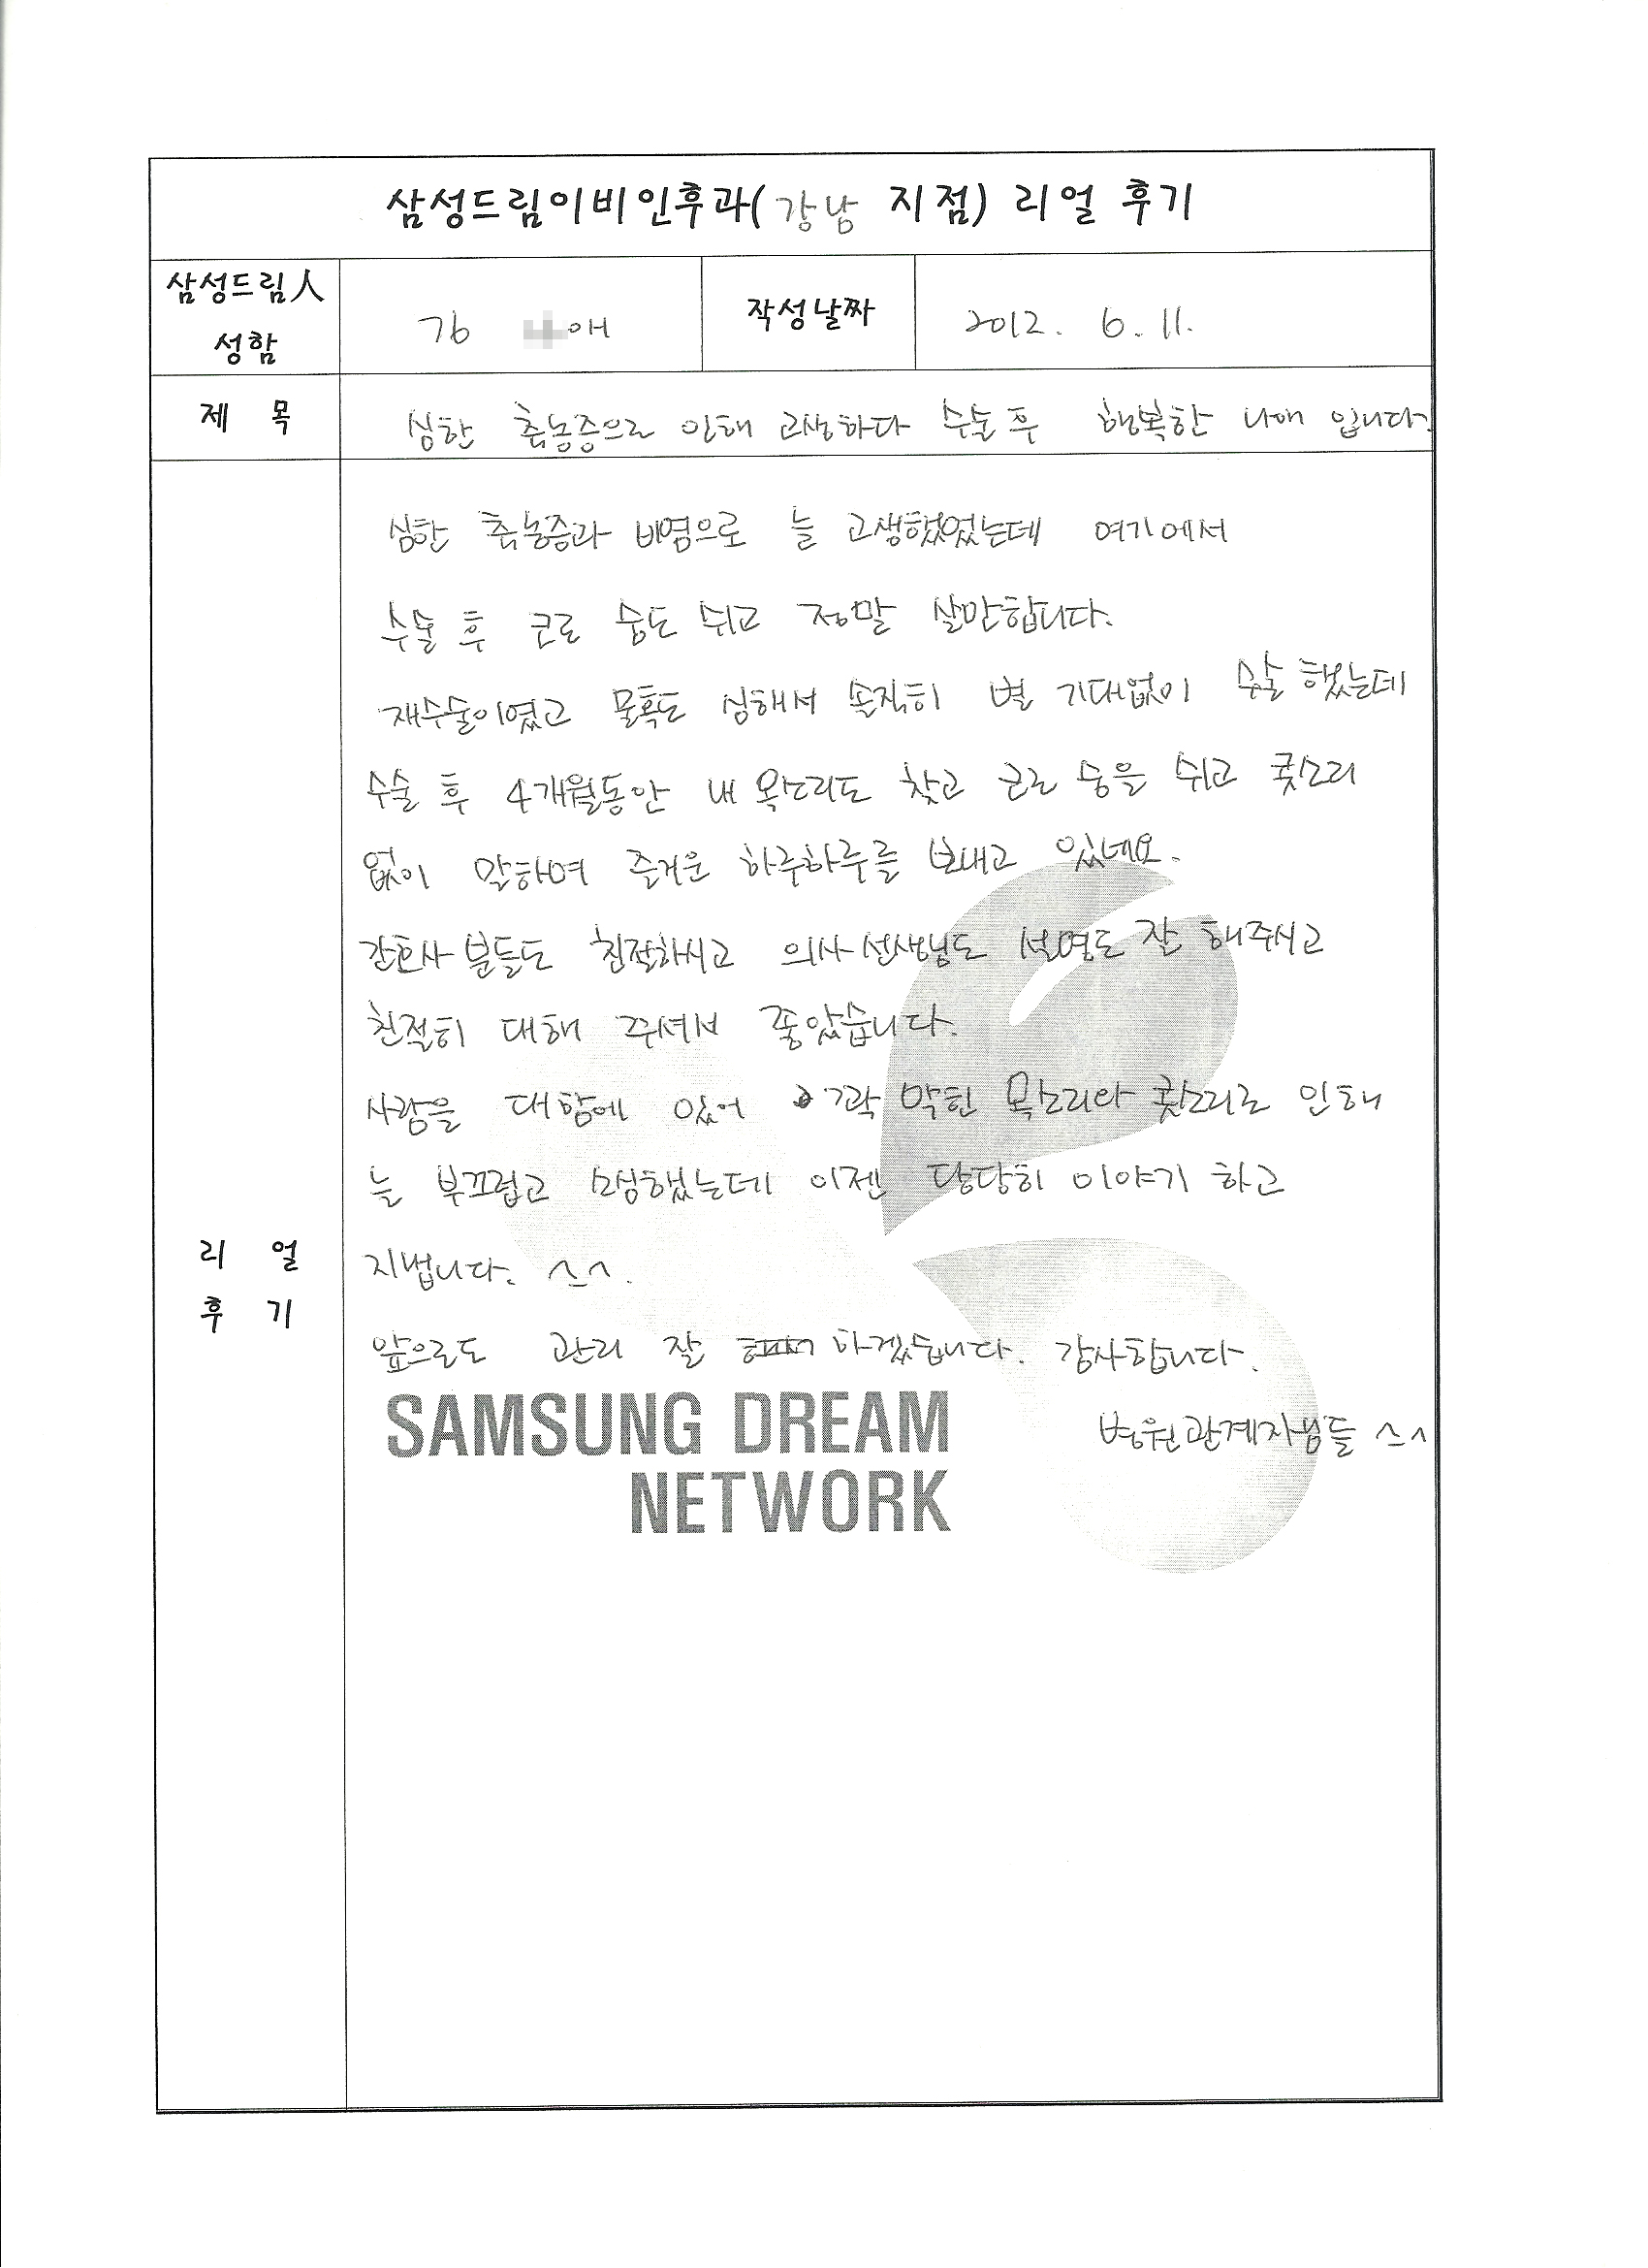 삼성드림이비인후과(강남 지점) 리얼 후기
삼성드림人 성함
김 애
작성날짜
2012. 6. 11.
제 목
심한 축농증으로 인해 고생하다 수술 후 행복한 나애 입니다.
심한 축농증과 비염으로 늘 고생했었는데 여기에서
수술 후 코로 숨도 쉬고 정말 살만합니다.
재수술이였고 물혹도 심해서 솔직히 별 기대없이 수술 했는데
수술 후 4개월동안 내 목소리도 찾고 코로 숨을 쉬고 콧소리
없이 말하며 즐거운 하루하루를 보내고 있네요.
간호사 분들도 친절하시고 의사선생님도 설명도 잘 해주시고
친절히 대해 주셔서 좋았습니다.
사람을 대함에 있어 꽉 막힌 목소리와 콧소리로 인해
늘 부끄럽고 소심했는데 이젠 당당히 이야기 하고
지냅니다. ^_^.
리 얼
후 기
앞으로도 관리 잘 하겠습니다. 감사합니다.
병원관계자님들 ^_^
SAMSUNG DREAM
NETWORK